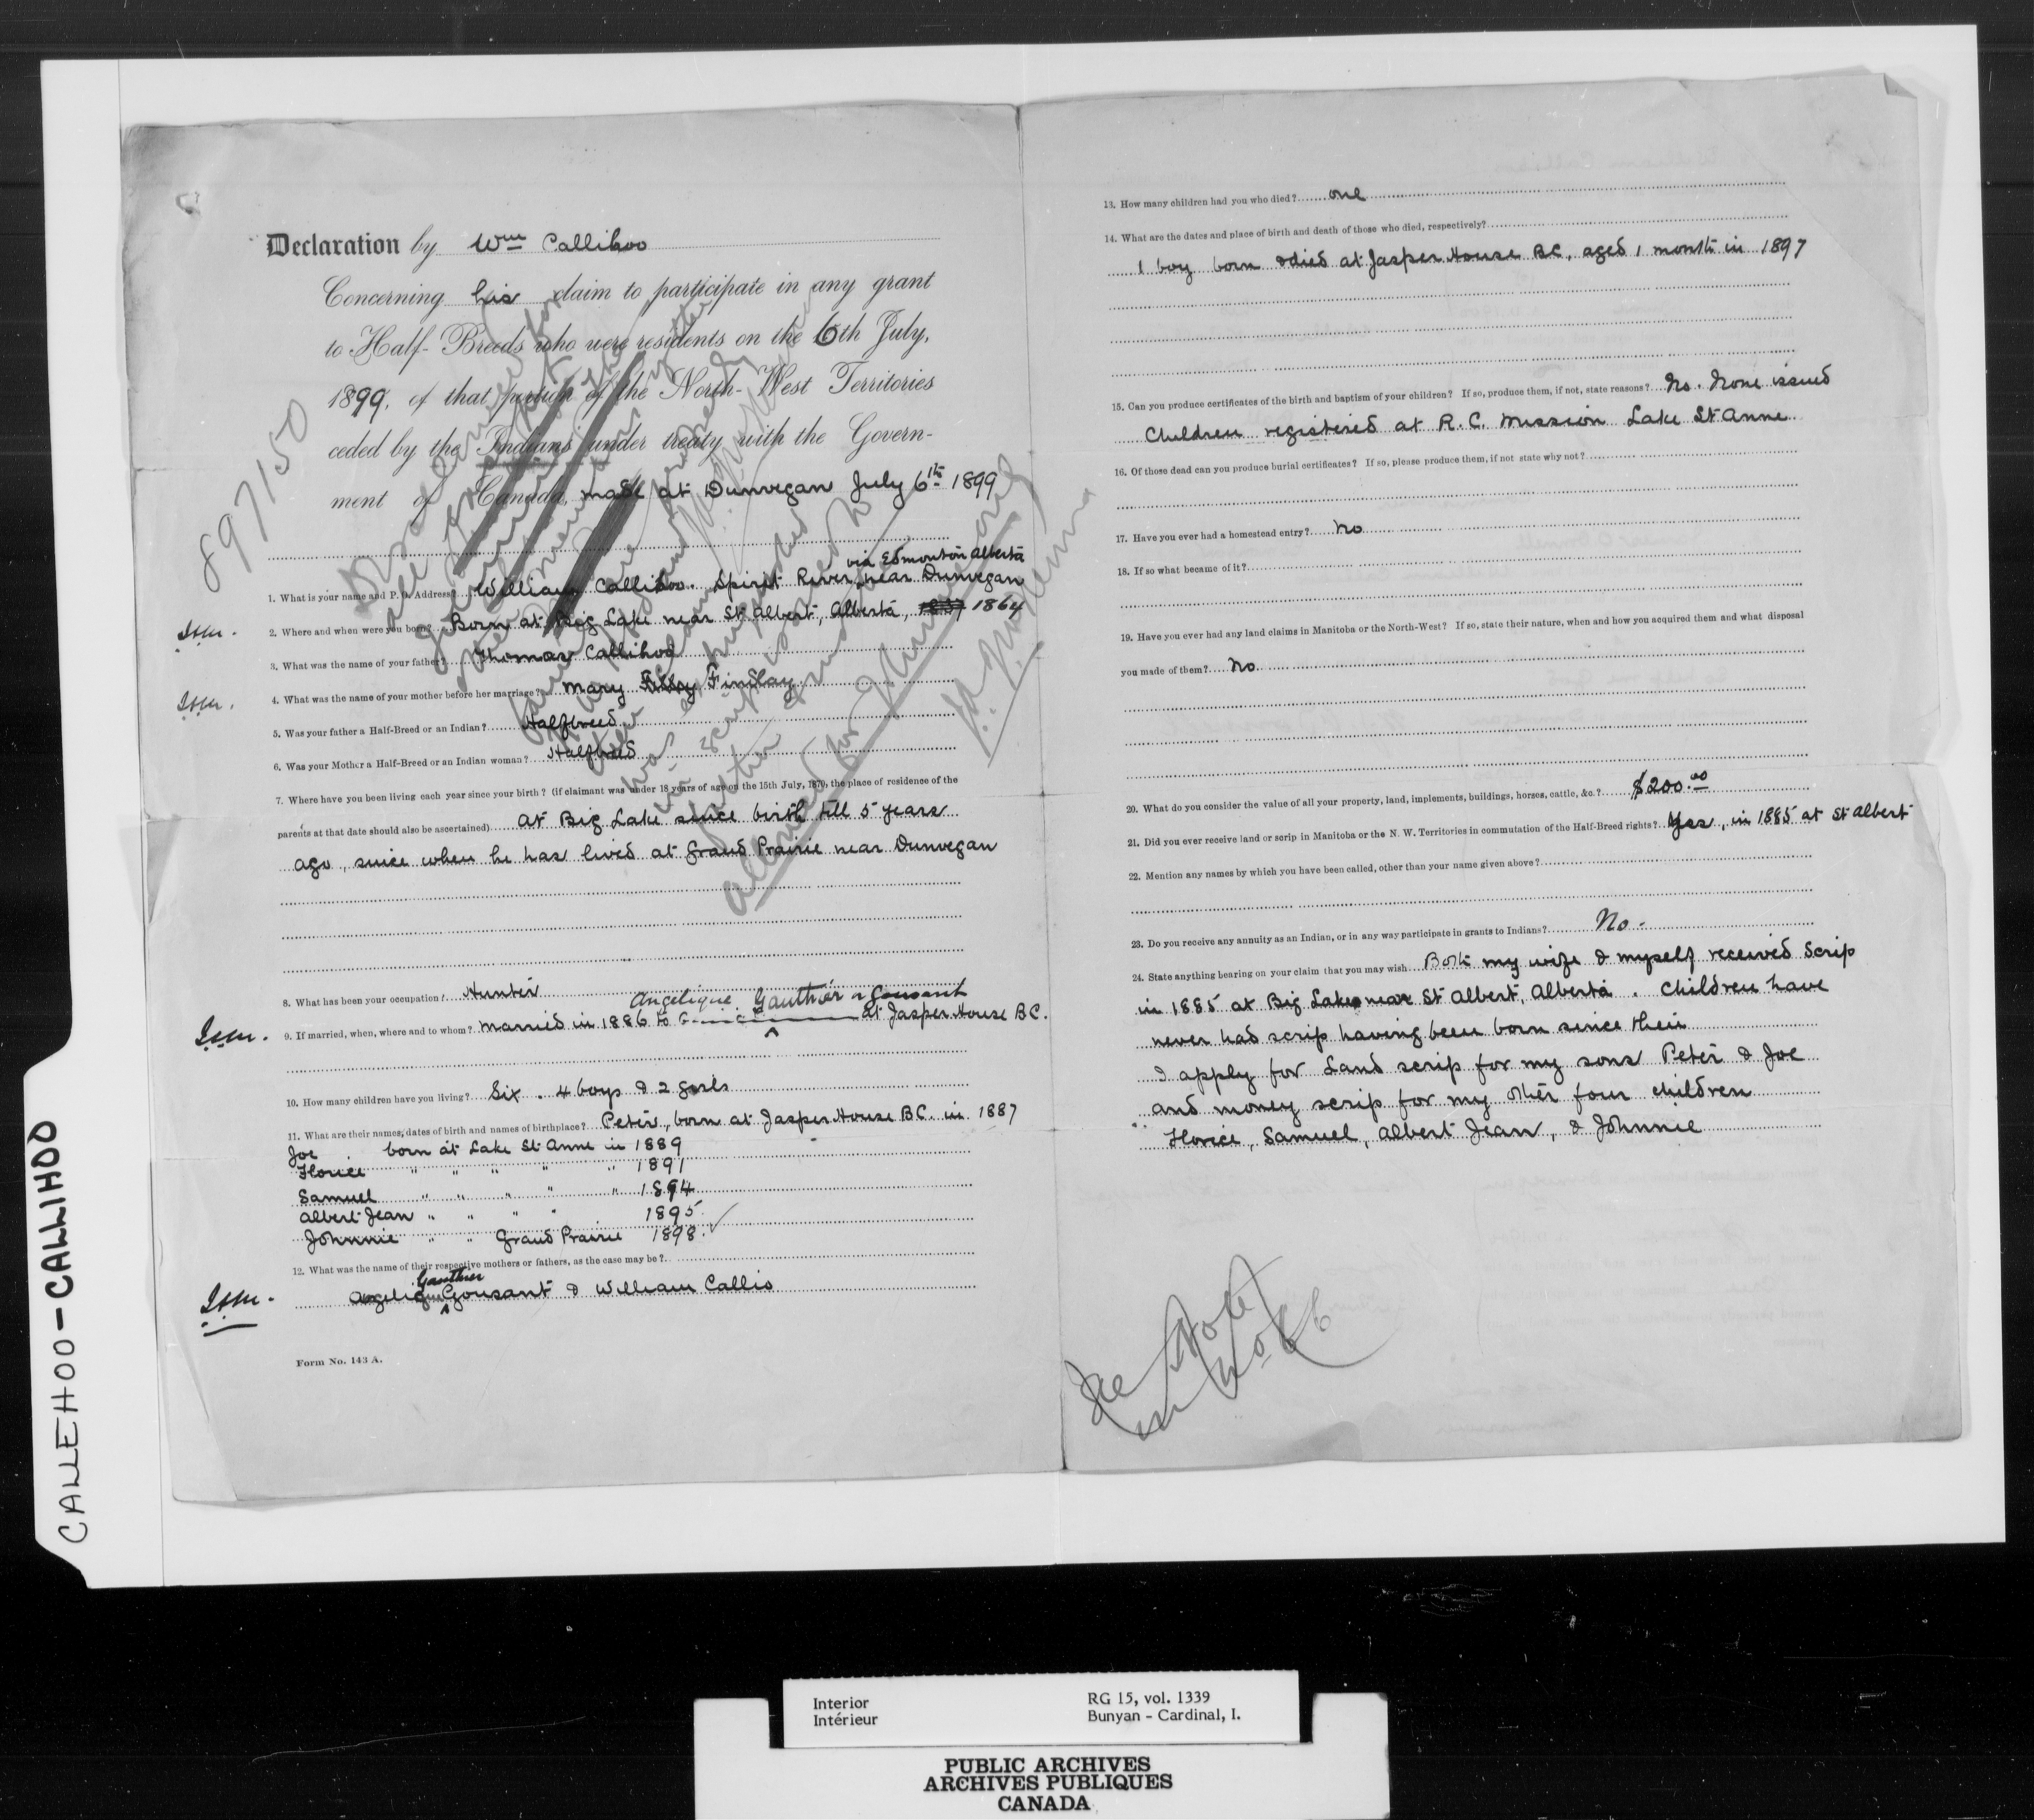 CALLEHOO-CALLIHOO
897150
Declaration by Wm Callihoo
Concerning his claim to participate in any grant
to Half-Breeds who were residents on the 6th July,
1899, of that portion of the North-West Territories
ceded by the Indians under treaty with the Govern-
ment of Canada, made at Dunvegan July 6th 1899
via Edmonton Alberta
1. What is your name and P. O. Address? William Callihoo. Spirit River, near Dunvegan
2. Where and when were you born? Born at Big Lake near St Albert, Alberta, 1864
3. What was the name of your father? Thomas Callihoo
4. What was the name of your mother before her marriage? Mary Findlay
5. Was your father a Half-Breed or an Indian? Halfbreed
6. Was your Mother a Half-Breed or an Indian woman? Halfbreed
7. Where have you been living each year since your birth? (if claimant was under 18 years of age on the 15th July, 1870, the place of residence of the
parents at that date should also be ascertained) at Big Lake since birth till 5 years
ago, since when he has lived at Grand Prairie near Dunvegan
8. What has been your occupation? Hunter
Angelique Gauthier or Gousant
9. If married, when, where and to whom? Married in 1886 to at Jasper House BC.
10. How many children have you living? Six. 4 boys & 2 girls
11. What are their names, dates of birth and names of birthplace? Peter, born at Jasper House BC. in 1887
Joe born at Lake St Anne in 1889
Florice " " " " " 1891
Samuel " " " " " 1894
Albert Jean " " " " 1895
Johnnie " " Grand Prairie 1898
12. What was the name of their respective mothers or fathers, as the case may be?
Gauthier
Angelique Gousant & William Callio
Form No. 143 A.
allowed for Johnnie only
13. How many children had you who died? one
14. What are the dates and place of birth and death of those who died, respectively?
1 boy born & died at Jasper House BC, aged 1 month in 1897
15. Can you produce certificates of the birth and baptism of your children? If so, produce them, if not, state reasons? No. None issued
Children registered at R. C. Mission Lake St Anne
16. Of those dead can you produce burial certificates? If so, please produce them, if not state why not?
17. Have you ever had a homestead entry? No
18. If so what became of it?
19. Have you ever had any land claims in Manitoba or the North-West? If so, state their nature, when and how you acquired them and what disposal
you made of them? No
20. What do you consider the value of all your property, land, implements, buildings, horses, cattle, &c.? $200.00
21. Did you ever receive land or scrip in Manitoba or the N. W. Territories in commutation of the Half-Breed rights? Yes, in 1885 at St Albert
22. Mention any names by which you have been called, other than your name given above?
23. Do you receive any annuity as an Indian, or in any way participate in grants to Indians? No.
24. State anything bearing on your claim that you may wish Both my wife & myself received Scrip
in 1885 at Big Lake near St Albert, Alberta. Children have
never had scrip having been born since then
I apply for Land scrip for my sons Peter & Joe
and money scrip for my other four children
Florice, Samuel, Albert Jean, & Johnnie
See Note
in No 66
Interior
Intérieur
RG 15, vol. 1339
Bunyan - Cardinal, I.
PUBLIC ARCHIVES
ARCHIVES PUBLIQUES
CANADA